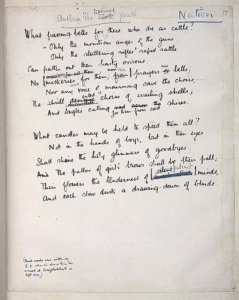 Nation
Anthem for Youth
What passing bells for these who die as cattle?
- Only the monstrous anger of the guns
Only the stuttering rifles' rapid rattle
Can patter out their hasty orisons
No mockeries for them; from prayers or bells
Nor any voice of mourning save the choirs,
The shrill demented choirs of wailing shells;
And bugles calling for them from shires.
What candles may be held to speed them all?
Not in the hands of boys, but in their eyes
Shall shine the holy glimmers of goodbyes.
And The pallor of girls' brows shall be their pall;
Their flowers the tenderness of silent minds,
And each slow dusk a drawing-down of blinds
at Craiglockhart in
Sept 1917